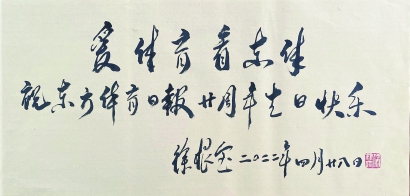 爱体育看东体
祝东方体育日報廿周年生日快乐
徐根宝二〇二二年四月廿八日